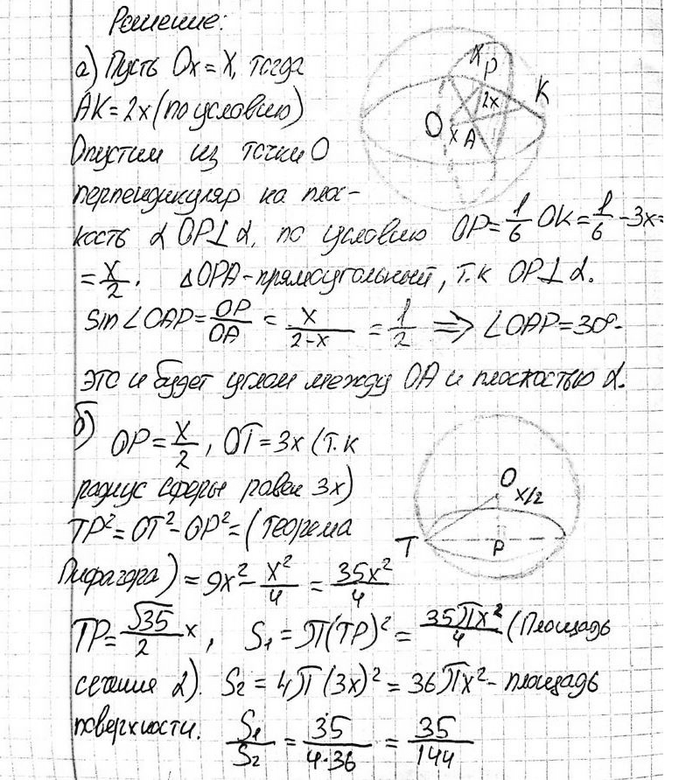 Решение:
а) Пусть Ox = x, тогда
AK = 2x (по условию)
Опустим из точки O
перпендикуляр на плос-
кость α OP⊥α, по условию OP = 1/6 OK = 1/6 · 3x =
= x/2. △OPA - прямоугольный, т.к OP⊥α.
sin∠OAP = OP/OA = x/2·x = 1/2 ⇒ ∠OAP = 30° -
это и будет углом между OA и плоскостью α.
б) OP = x/2, OT = 3x (т.к
радиус сферы равен 3x)
TP² = OT² - OP² = (теорема
Пифагора) = 9x² - x²/4 = 35x²/4
TP = √35/2 x, S₁ = π(TP)² = 35πx²/4 (Площадь
сечения α). S₂ = 4π(3x)² = 36πx² - площадь
поверхности. S₁/S₂ = 35/4·36 = 35/144
X P K
2x
O x A
O
x/2
T P